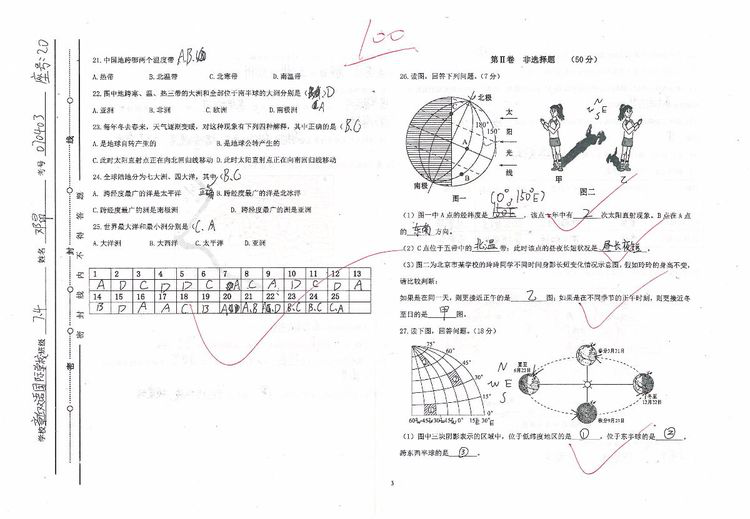 座号:20
考号 070403
姓名 邓昂
班级 7.4
学校
密 封 线 内 不 得 答 题
100
21. 中国地跨哪两个温度带 A B.
A. 热带 B. 北温带 C. 北寒带 D. 南温带
22. 图中地跨寒、温、热三带的大洲和全部位于南半球的大洲分别是( D
A. 亚洲 B. 非洲 C. 欧洲 D. 南极洲 A
23. 每年冬去春来,天气逐渐变暖,对这种现象有下列四种解释,其中正确的是( B.C
A. 是地球自转产生的 B. 是地球公转产生的
C. 此时太阳直射点正在向北回归线移动 D. 此时太阳直射点正在向南回归线移动
24. 全球陆地分为七大洲、四大洋,其中( B.C
A. 跨经度最广的洋是太平洋 B. 跨经度最广的洋是北冰洋
C. 跨经度最广的洲是南极洲 D. 跨经度最广的洲是亚洲
25. 世界最大洋和最小洲分别是( C.A
A. 大洋洲 B. 大西洋 C. 太平洋 D. 亚洲
1 2 3 4 5 6 7 8 9 10 11 12 13
A D C D D C A C A D C D A
14 15 16 17 18 19 20 21 22 23 24 25
B D A A C B A A.B A.D B.C B.C C.A
第Ⅱ卷 非选择题 (50分)
26. 读图,回答下列问题。(7分)
北极
180°
150°
A
B
C
南极
太
阳
光
线
图一
N
W E
S
甲 乙
图二
(0°,150°E)
(1)图一中A点的经纬度是 ,该点一年中有 2 次太阳直射现象。B点在A点
的 东南 方向。
(2)C点位于五带中的 北温 带;此时该点的昼夜长短状况是 昼长夜短 。
(3)图二为北京市某学校的玲玲同学不同时间身影长短变化情况示意图,假如玲玲的身高不变,
请比较判断:
如果是在同一天,则更接近正午的是 乙 图;如果是在不同季节的正午时刻,则更接近冬
至日的是 甲 图。
27. 读下图,回答问题。(18分)
75°
60°
45°
30°
15°
0°
60° 45° 30° 15° 0° 15° 30°
N
W E
S
春分3月21日
夏至
6月22日
冬至
12月22日
秋分9月23日
(1)图中三块阴影表示的区域中,位于低纬度地区的是 ① ,位于东半球的是 ② ,
跨东西半球的是 ③ 。
3